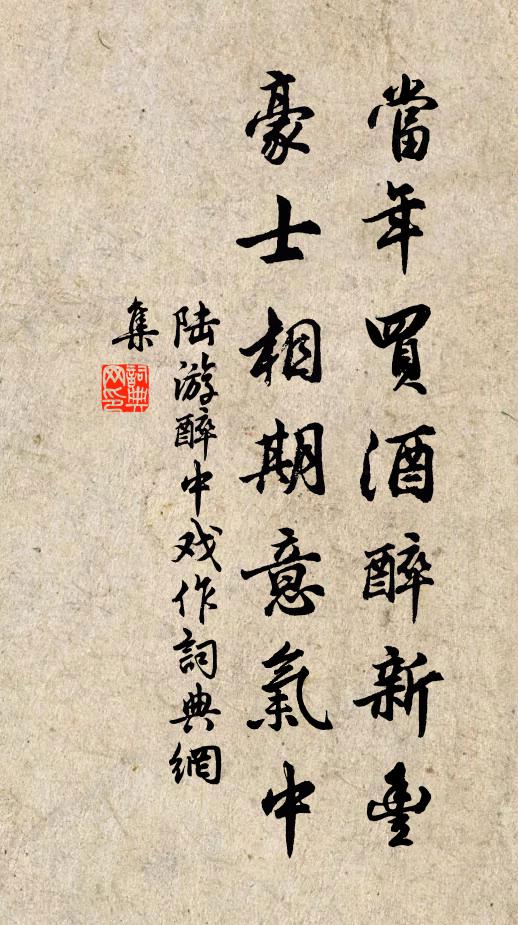 當年買酒醉新豐
豪士相期意氣中
陆游醉中戏作詞典網
集
詞典网印